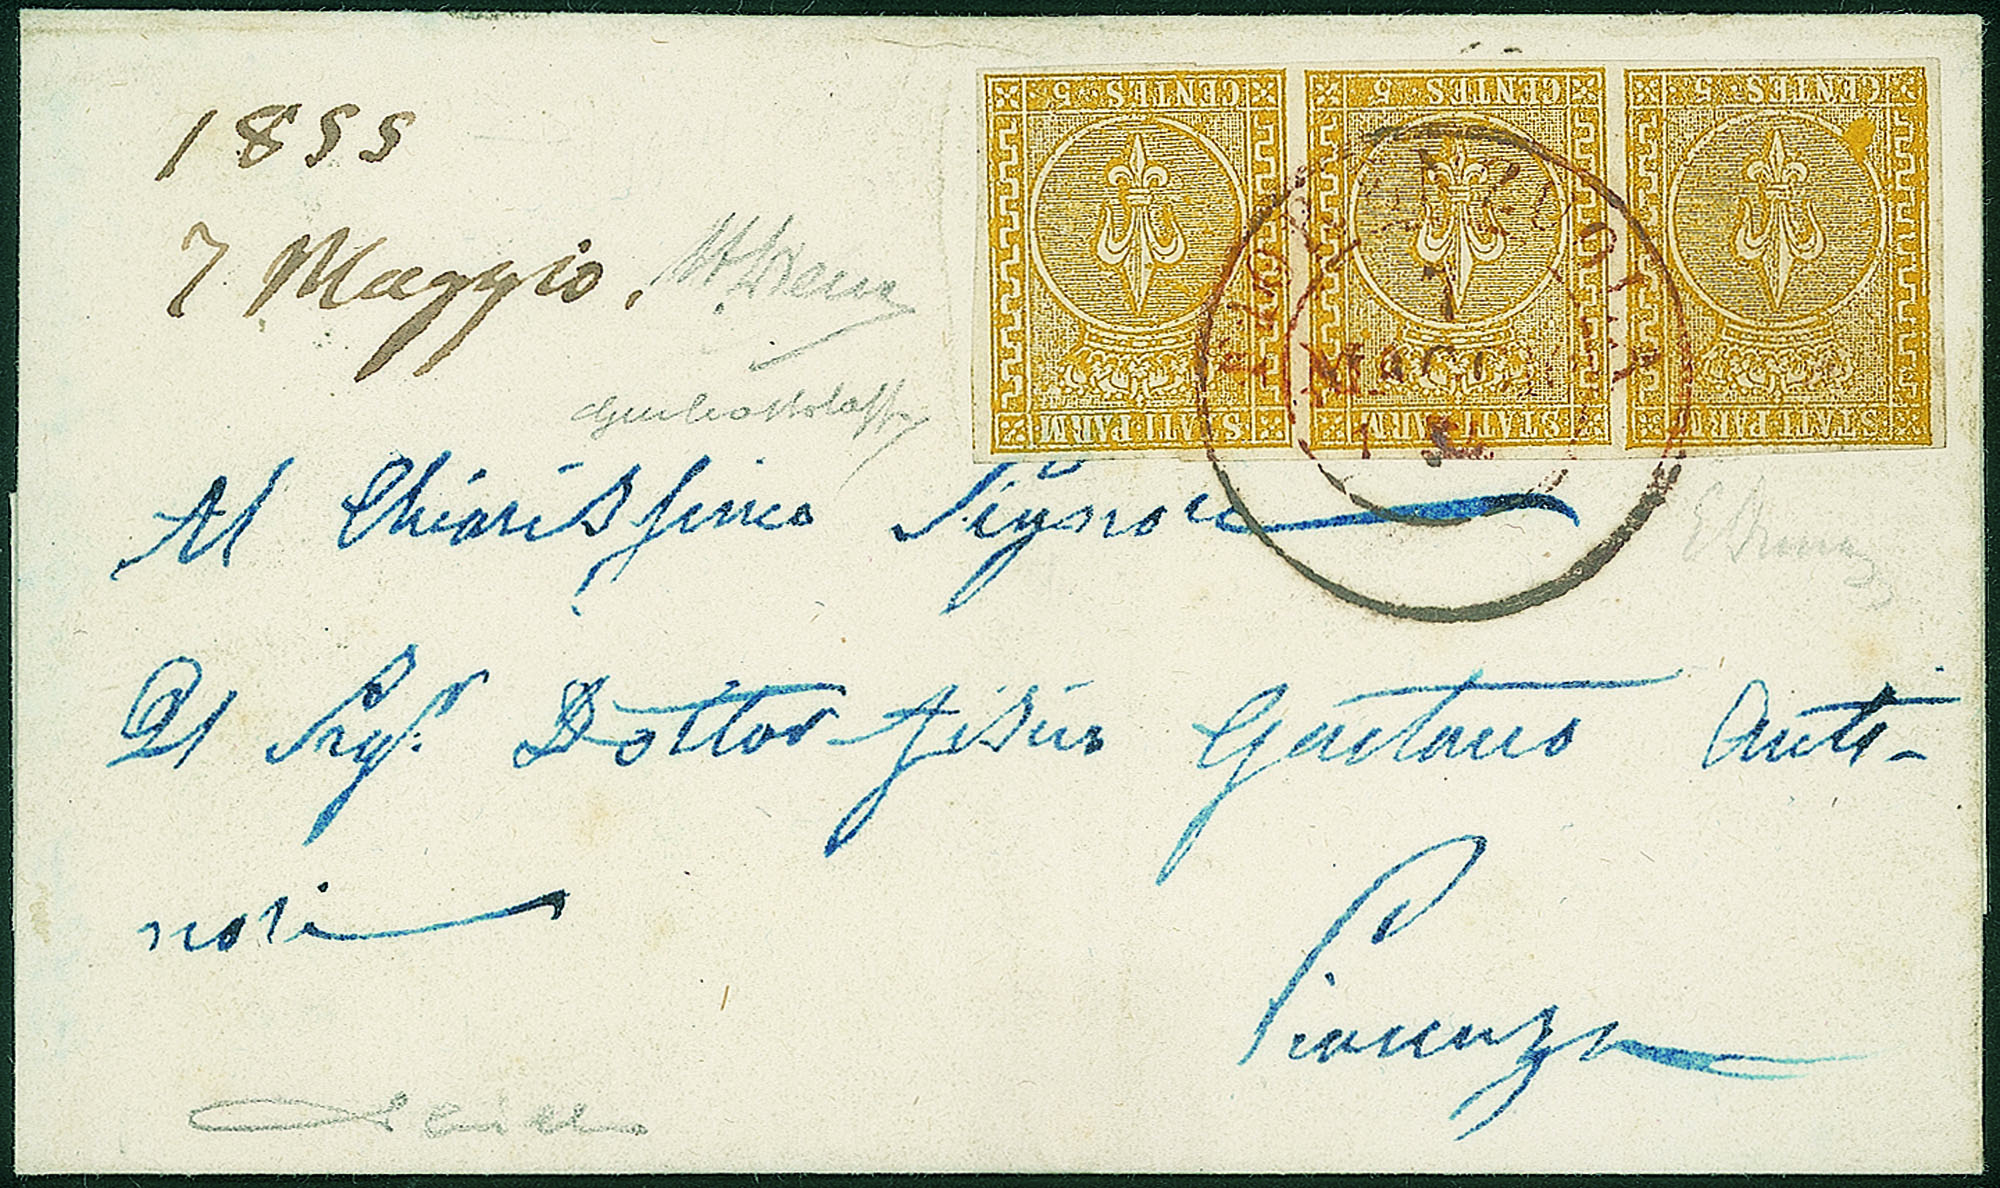 1855
7 Maggio,
CENTES · 5
CENTES · 5
CENTES · 5
STATI PARM
STATI PARM
STATI PARM
FIORENZUOLA
7
MAGG
Al Chiarissimo Signore
Il Sig.r Dottor Fisico Gaetano Anti-
nori
Piacenza